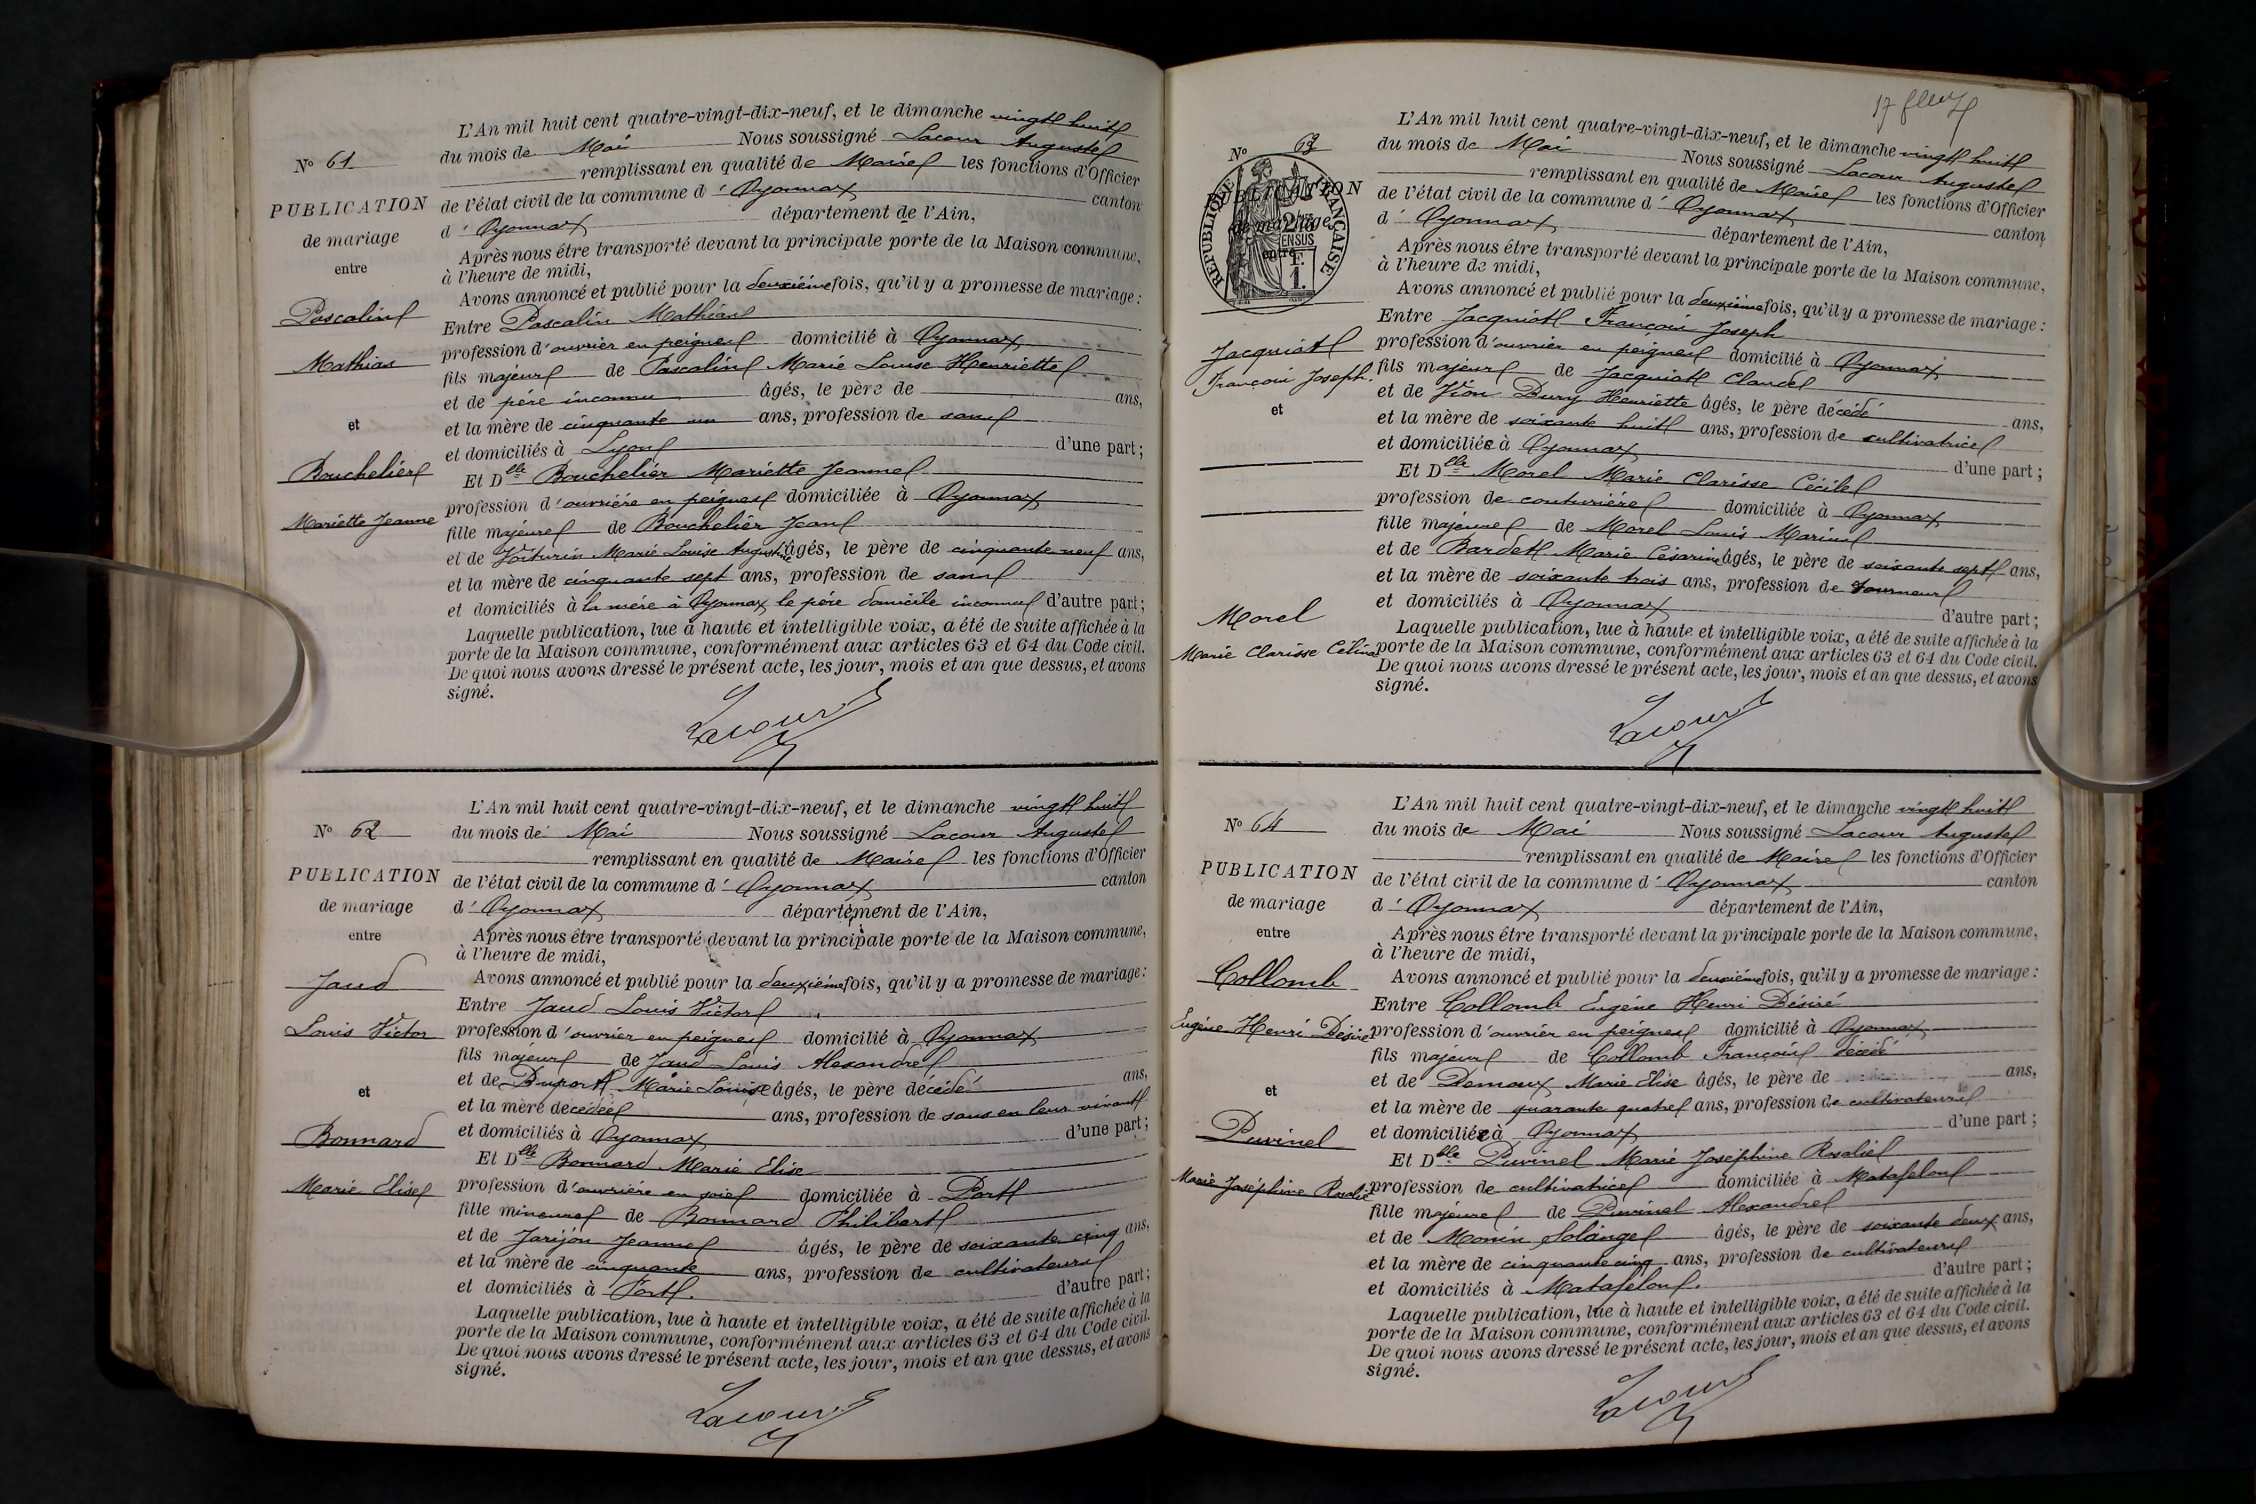 L'An mil huit cent quatre-vingt-dix-neuf, et le dimanche vingt huit
du mois de Mai Nous soussigné Lacour Auguste
N° 61
remplissant en qualité de Maire les fonctions d'Officier
PUBLICATION
de l'état civil de la commune d' Oyonnax canton
de mariage
d' Oyonnax département de l'Ain,
entre
Après nous être transporté devant la principale porte de la Maison commune,
à l'heure de midi,
Avons annoncé et publié pour la deuxième fois, qu'il y a promesse de mariage :
Pascalin
Entre Pascalin Mathias
profession d'ouvrier en peignes domicilié à Oyonnax
Mathias
fils majeur de Pascalin Marie Louise Henriette
et de père inconnu âgés, le père de ans,
et
et la mère de cinquante un ans, profession de sans
et domiciliés à Lyon d'une part ;
Bouchelier
Et Dlle Bouchelier Mariette Jeanne
profession d'ouvrière en peignes domiciliée à Oyonnax
Mariette Jeanne
fille majeure de Bouchelier Jean
et de Voiturin Marie Louise Augustine âgés, le père de cinquante neuf ans,
et la mère de cinquante sept ans, profession de sans
et domiciliés à la mère à Oyonnax le père domicile inconnu d'autre part ;
Laquelle publication, lue à haute et intelligible voix, a été de suite affichée à la
porte de la Maison commune, conformément aux articles 63 et 64 du Code civil.
De quoi nous avons dressé le présent acte, les jour, mois et an que dessus, et avons
signé.
Lacour
L'An mil huit cent quatre-vingt-dix-neuf, et le dimanche vingt huit
N° 62
du mois de Mai Nous soussigné Lacour Auguste
remplissant en qualité de Maire les fonctions d'Officier
PUBLICATION
de l'état civil de la commune d' Oyonnax canton
de mariage
d' Oyonnax département de l'Ain,
entre
Après nous être transporté devant la principale porte de la Maison commune,
à l'heure de midi,
Jaud
Avons annoncé et publié pour la deuxième fois, qu'il y a promesse de mariage :
Entre Jaud Louis Victor
Louis Victor
profession d'ouvrier en peignes domicilié à Oyonnax
fils majeur de Jaud Louis Alexandre
et de Duport Marie Louise âgés, le père décédé ans,
et
et la mère décédée ans, profession de sans en leur vivant
Bonnard
et domiciliés à Oyonnax d'une part ;
Et Dlle Bonnard Marie Elise
Marie Elise
profession d'ouvrière en soie domiciliée à Port
fille mineure de Bonnard Philibert
et de Jarijon Jeanne âgés, le père de soixante cinq ans,
et la mère de cinquante ans, profession de cultivateurs
et domiciliés à Port. d'autre part ;
Laquelle publication, lue à haute et intelligible voix, a été de suite affichée à la
porte de la Maison commune, conformément aux articles 63 et 64 du Code civil.
De quoi nous avons dressé le présent acte, les jour, mois et an que dessus, et avons
signé.
Lacour
L'An mil huit cent quatre-vingt-dix-neuf, et le dimanche vingt huit
N° 63
du mois de Mai Nous soussigné Lacour Auguste
remplissant en qualité de Maire les fonctions d'Officier
PUBLICATION
de l'état civil de la commune d' Oyonnax canton
de mariage
d' Oyonnax département de l'Ain,
entre
RÉPUBLIQUE FRANÇAISE
Après nous être transporté devant la principale porte de la Maison commune,
à l'heure de midi,
Avons annoncé et publié pour la deuxième fois, qu'il y a promesse de mariage :
Entre Jacquiot François Joseph
Jacquiot
profession d'ouvrier en peignes domicilié à Oyonnax
François Joseph.
fils majeur de Jacquiot Claude
et
et de Vion Dury Henriette âgés, le père décédé ans,
et la mère de soixante huit ans, profession de cultivatrice
et domiciliée à Oyonnax d'une part ;
Et Dlle Morel Marie Clarisse Cécile
profession de couturière domiciliée à Oyonnax
fille majeure de Morel Louis Marin
et de Bardet Marie Césarine âgés, le père de soixante sept ans,
et la mère de soixante trois ans, profession de tourneur
et domiciliés à Oyonnax d'autre part ;
Morel
Laquelle publication, lue à haute et intelligible voix, a été de suite affichée à la
Marie Clarisse
porte de la Maison commune, conformément aux articles 63 et 64 du Code civil.
De quoi nous avons dressé le présent acte, les jour, mois et an que dessus, et avons
signé.
Lacour
L'An mil huit cent quatre-vingt-dix-neuf, et le dimanche vingt huit
N° 64
du mois de Mai Nous soussigné Lacour Auguste
remplissant en qualité de Maire les fonctions d'Officier
PUBLICATION
de l'état civil de la commune d' Oyonnax canton
de mariage
d' Oyonnax département de l'Ain,
entre
Après nous être transporté devant la principale porte de la Maison commune,
à l'heure de midi,
Collomb
Avons annoncé et publié pour la deuxième fois, qu'il y a promesse de mariage :
Entre Collomb Eugène Henri Désiré
Eugène Henri Désiré
profession d'ouvrier en peignes domicilié à Oyonnax
fils majeur de Collomb François décédé
et de Demoux Marie Elise âgés, le père de ans,
et
et la mère de quarante quatre ans, profession de cultivateurs
Puvinel
et domiciliée à Oyonnax d'une part ;
Et Dlle Puvinel Marie Joséphine Rosalie
Marie Joséphine Rosalie
profession de cultivatrice domiciliée à Matafelon
fille majeure de Puvinel Alexandre
et de Monin Solange âgés, le père de soixante deux ans,
et la mère de cinquante cinq ans, profession de cultivateurs
et domiciliés à Matafelon. d'autre part ;
Laquelle publication, lue à haute et intelligible voix, a été de suite affichée à la
porte de la Maison commune, conformément aux articles 63 et 64 du Code civil.
De quoi nous avons dressé le présent acte, les jour, mois et an que dessus, et avons
signé.
Lacour